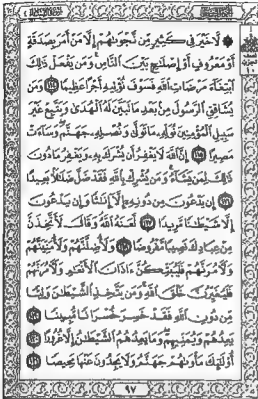 لَّا خَيْرَ فِى كَثِيرٍ مِّن نَّجْوَىٰهُمْ إِلَّا مَنْ أَمَرَ بِصَدَقَةٍ
أَوْ مَعْرُوفٍ أَوْ إِصْلَٰحٍۭ بَيْنَ ٱلنَّاسِ وَمَن يَفْعَلْ ذَٰلِكَ
ٱبْتِغَآءَ مَرْضَاتِ ٱللَّهِ فَسَوْفَ نُؤْتِيهِ أَجْرًا عَظِيمًا ١١٤ وَمَن
يُشَاقِقِ ٱلرَّسُولَ مِنۢ بَعْدِ مَا تَبَيَّنَ لَهُ ٱلْهُدَىٰ وَيَتَّبِعْ غَيْرَ
سَبِيلِ ٱلْمُؤْمِنِينَ نُوَلِّهِۦ مَا تَوَلَّىٰ وَنُصْلِهِۦ جَهَنَّمَ وَسَآءَتْ
مَصِيرًا ١١٥ إِنَّ ٱللَّهَ لَا يَغْفِرُ أَن يُشْرَكَ بِهِۦ وَيَغْفِرُ مَا دُونَ
ذَٰلِكَ لِمَن يَشَآءُ وَمَن يُشْرِكْ بِٱللَّهِ فَقَدْ ضَلَّ ضَلَٰلًۢا بَعِيدًا
١١٦ إِن يَدْعُونَ مِن دُونِهِۦٓ إِلَّآ إِنَٰثًا وَإِن يَدْعُونَ
إِلَّا شَيْطَٰنًا مَّرِيدًا ١١٧ لَّعَنَهُ ٱللَّهُ وَقَالَ لَأَتَّخِذَنَّ
مِنْ عِبَادِكَ نَصِيبًا مَّفْرُوضًا ١١٨ وَلَأُضِلَّنَّهُمْ وَلَأُمَنِّيَنَّهُمْ
وَلَءَامُرَنَّهُمْ فَلَيُبَتِّكُنَّ ءَاذَانَ ٱلْأَنْعَٰمِ وَلَءَامُرَنَّهُمْ
فَلَيُغَيِّرُنَّ خَلْقَ ٱللَّهِ وَمَن يَتَّخِذِ ٱلشَّيْطَٰنَ وَلِيًّا
مِّن دُونِ ٱللَّهِ فَقَدْ خَسِرَ خُسْرَانًا مُّبِينًا ١١٩
يَعِدُهُمْ وَيُمَنِّيهِمْ وَمَا يَعِدُهُمُ ٱلشَّيْطَٰنُ إِلَّا غُرُورًا ١٢٠
أُو۟لَٰٓئِكَ مَأْوَىٰهُمْ جَهَنَّمُ وَلَا يَجِدُونَ عَنْهَا مَحِيصًا ١٢١
٩٧